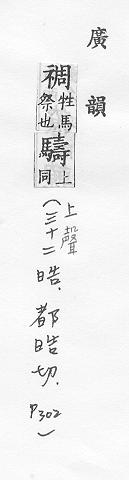 廣韻
禂牲馬祭也䮻上同
(上聲三十二晧,都晧切,P302)